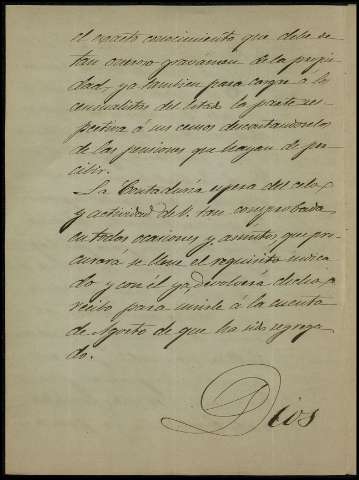 el exacto conocimiento que debe de
tan oneroso gravámen de la propie
dad, ya tambien para cargar á los
censualistas del Estado la parte res-
pectiva á sus censos descontandoselos
de las pensiones que hayan de per
cibir.
La Contaduría espera del celo
y actividad de V. tan comprobada
en todas ocasiones y asuntos que pro
curará se llene el requisito indica
do y con él ya, devolverá dicho
recibo para unirle á la cuenta
de Agosto de que ha sido segrega
do.
Dios